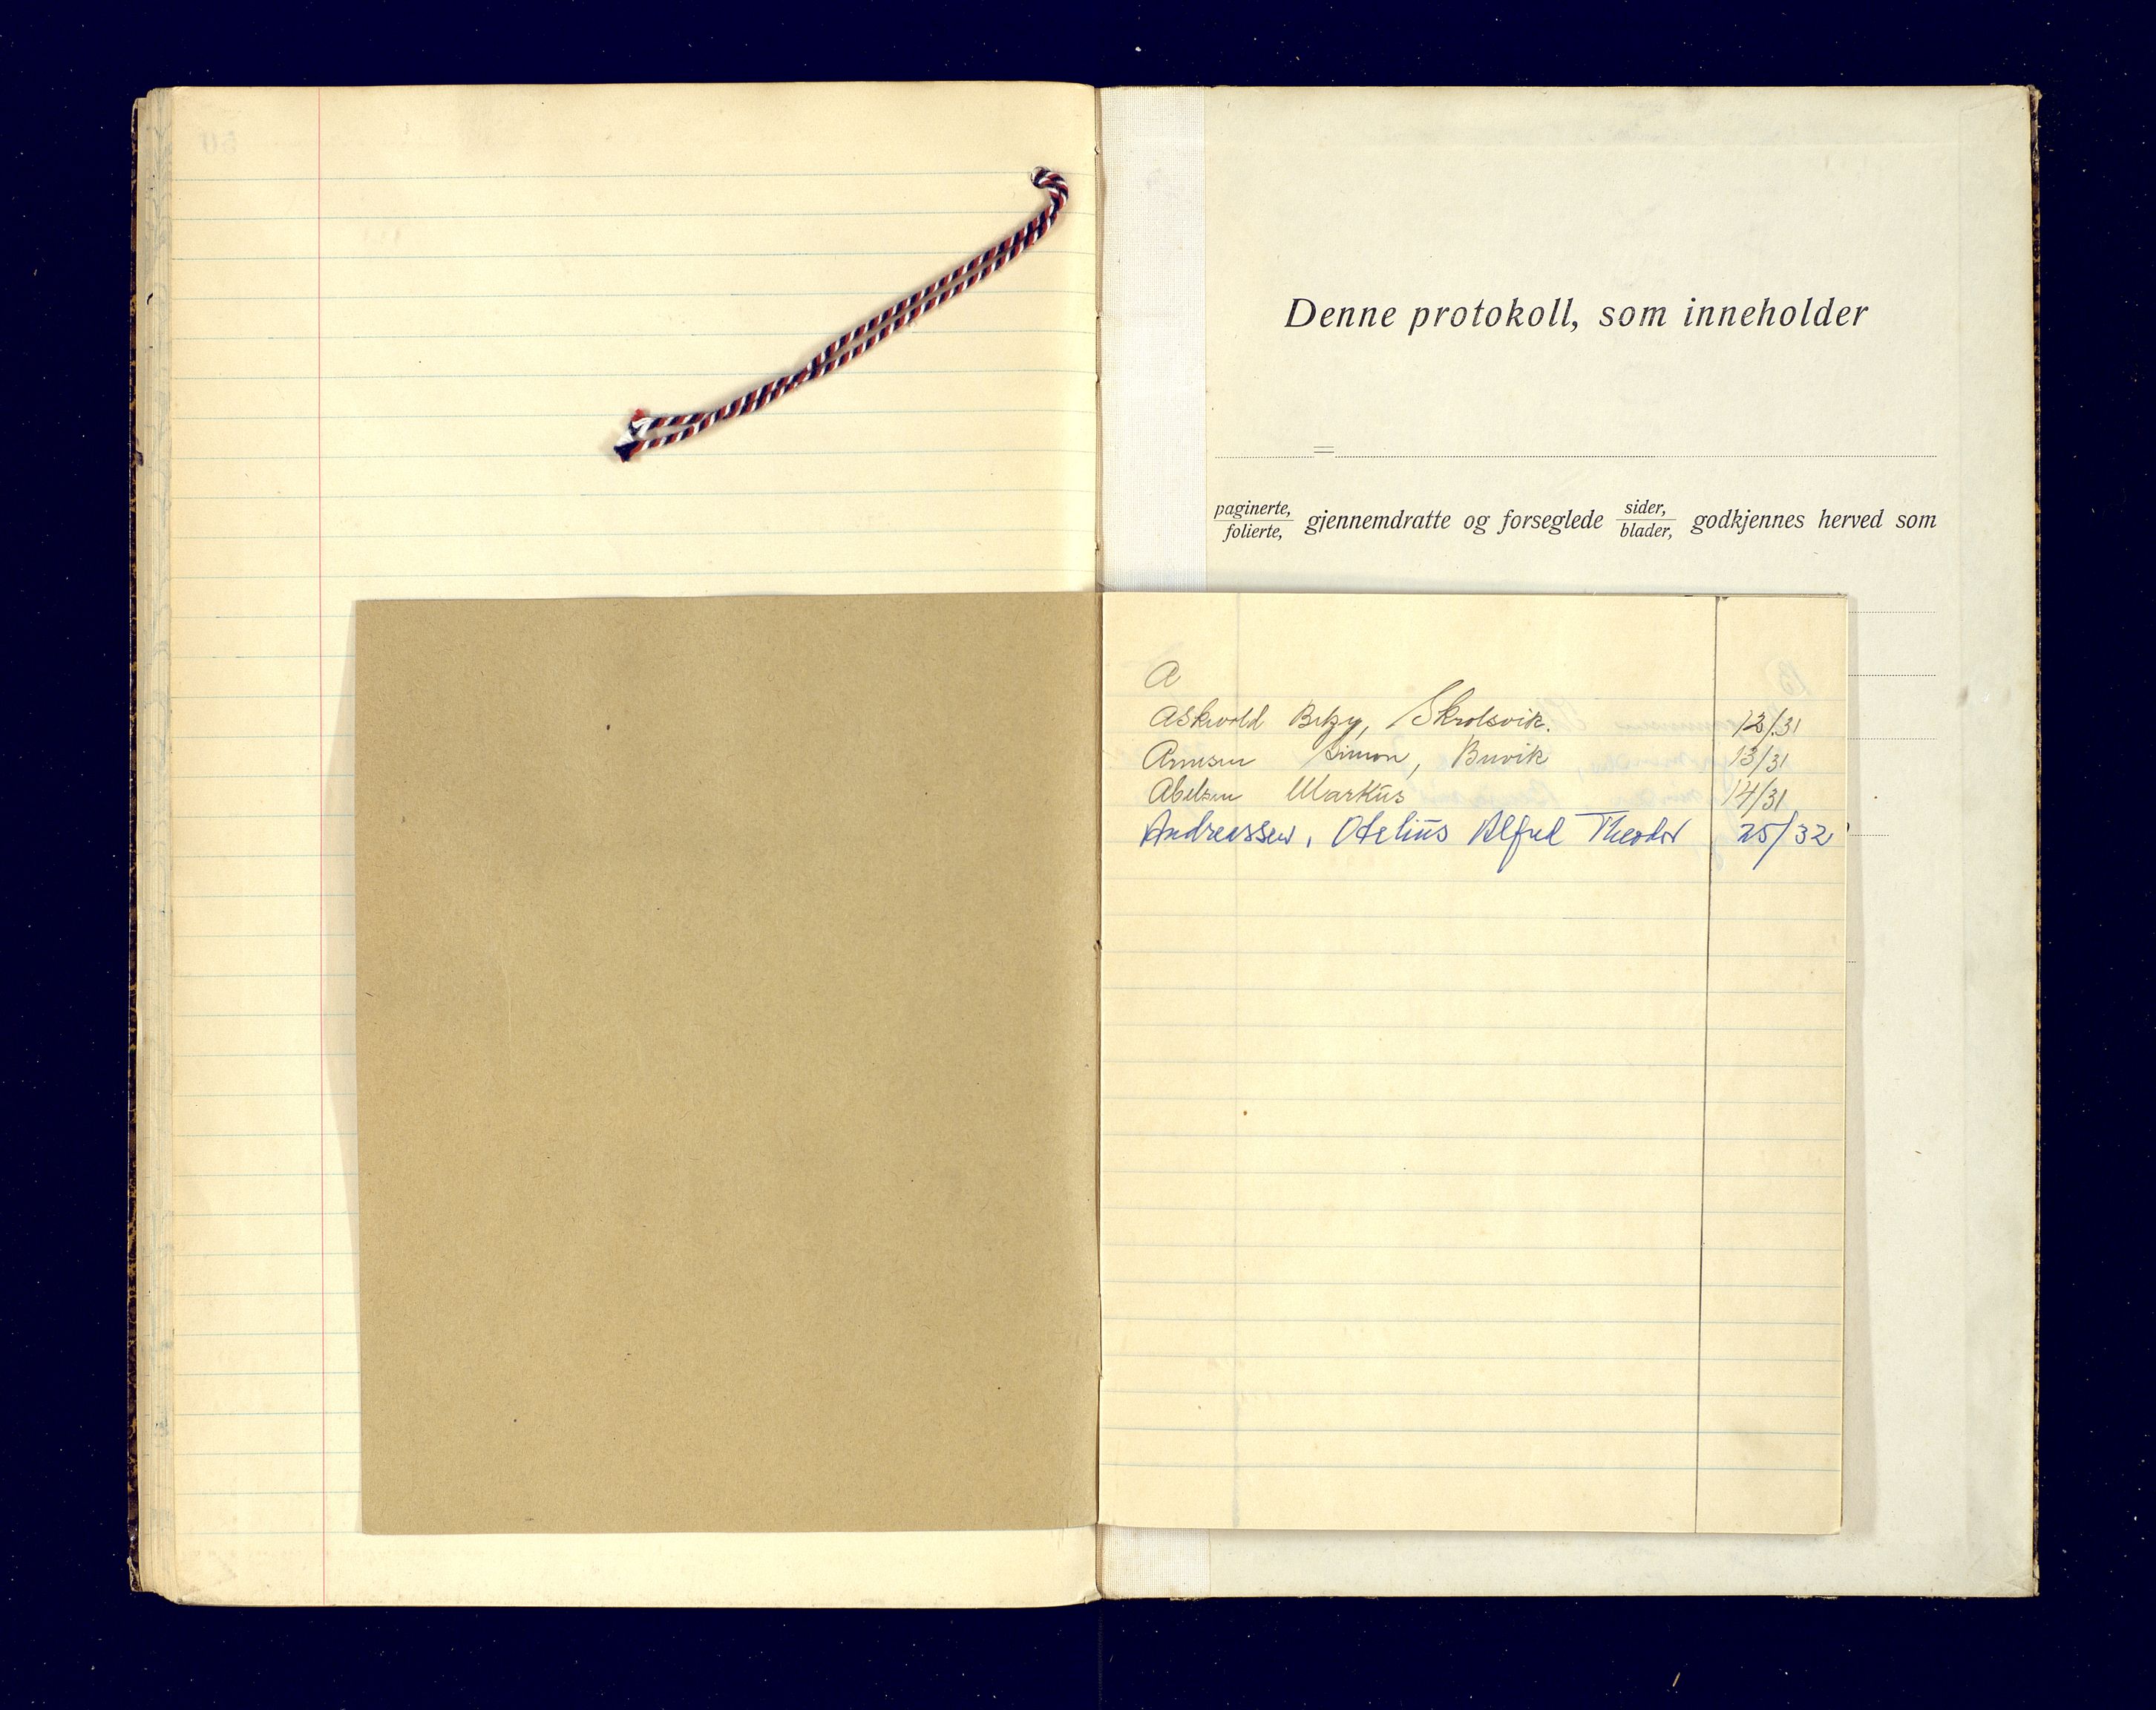 Denne protokoll, som inneholder
=
paginerte,
folierte, gjennemdratte og forseglede sider,
blader, godkjennes herved som
A
Askevold Betzy, Skrolsvik. 12/31
Arnesen Simon, Buvik 13/31
Abelsen Markus 14/31
Andreassen, Otelius Alfred Theodor 25/32